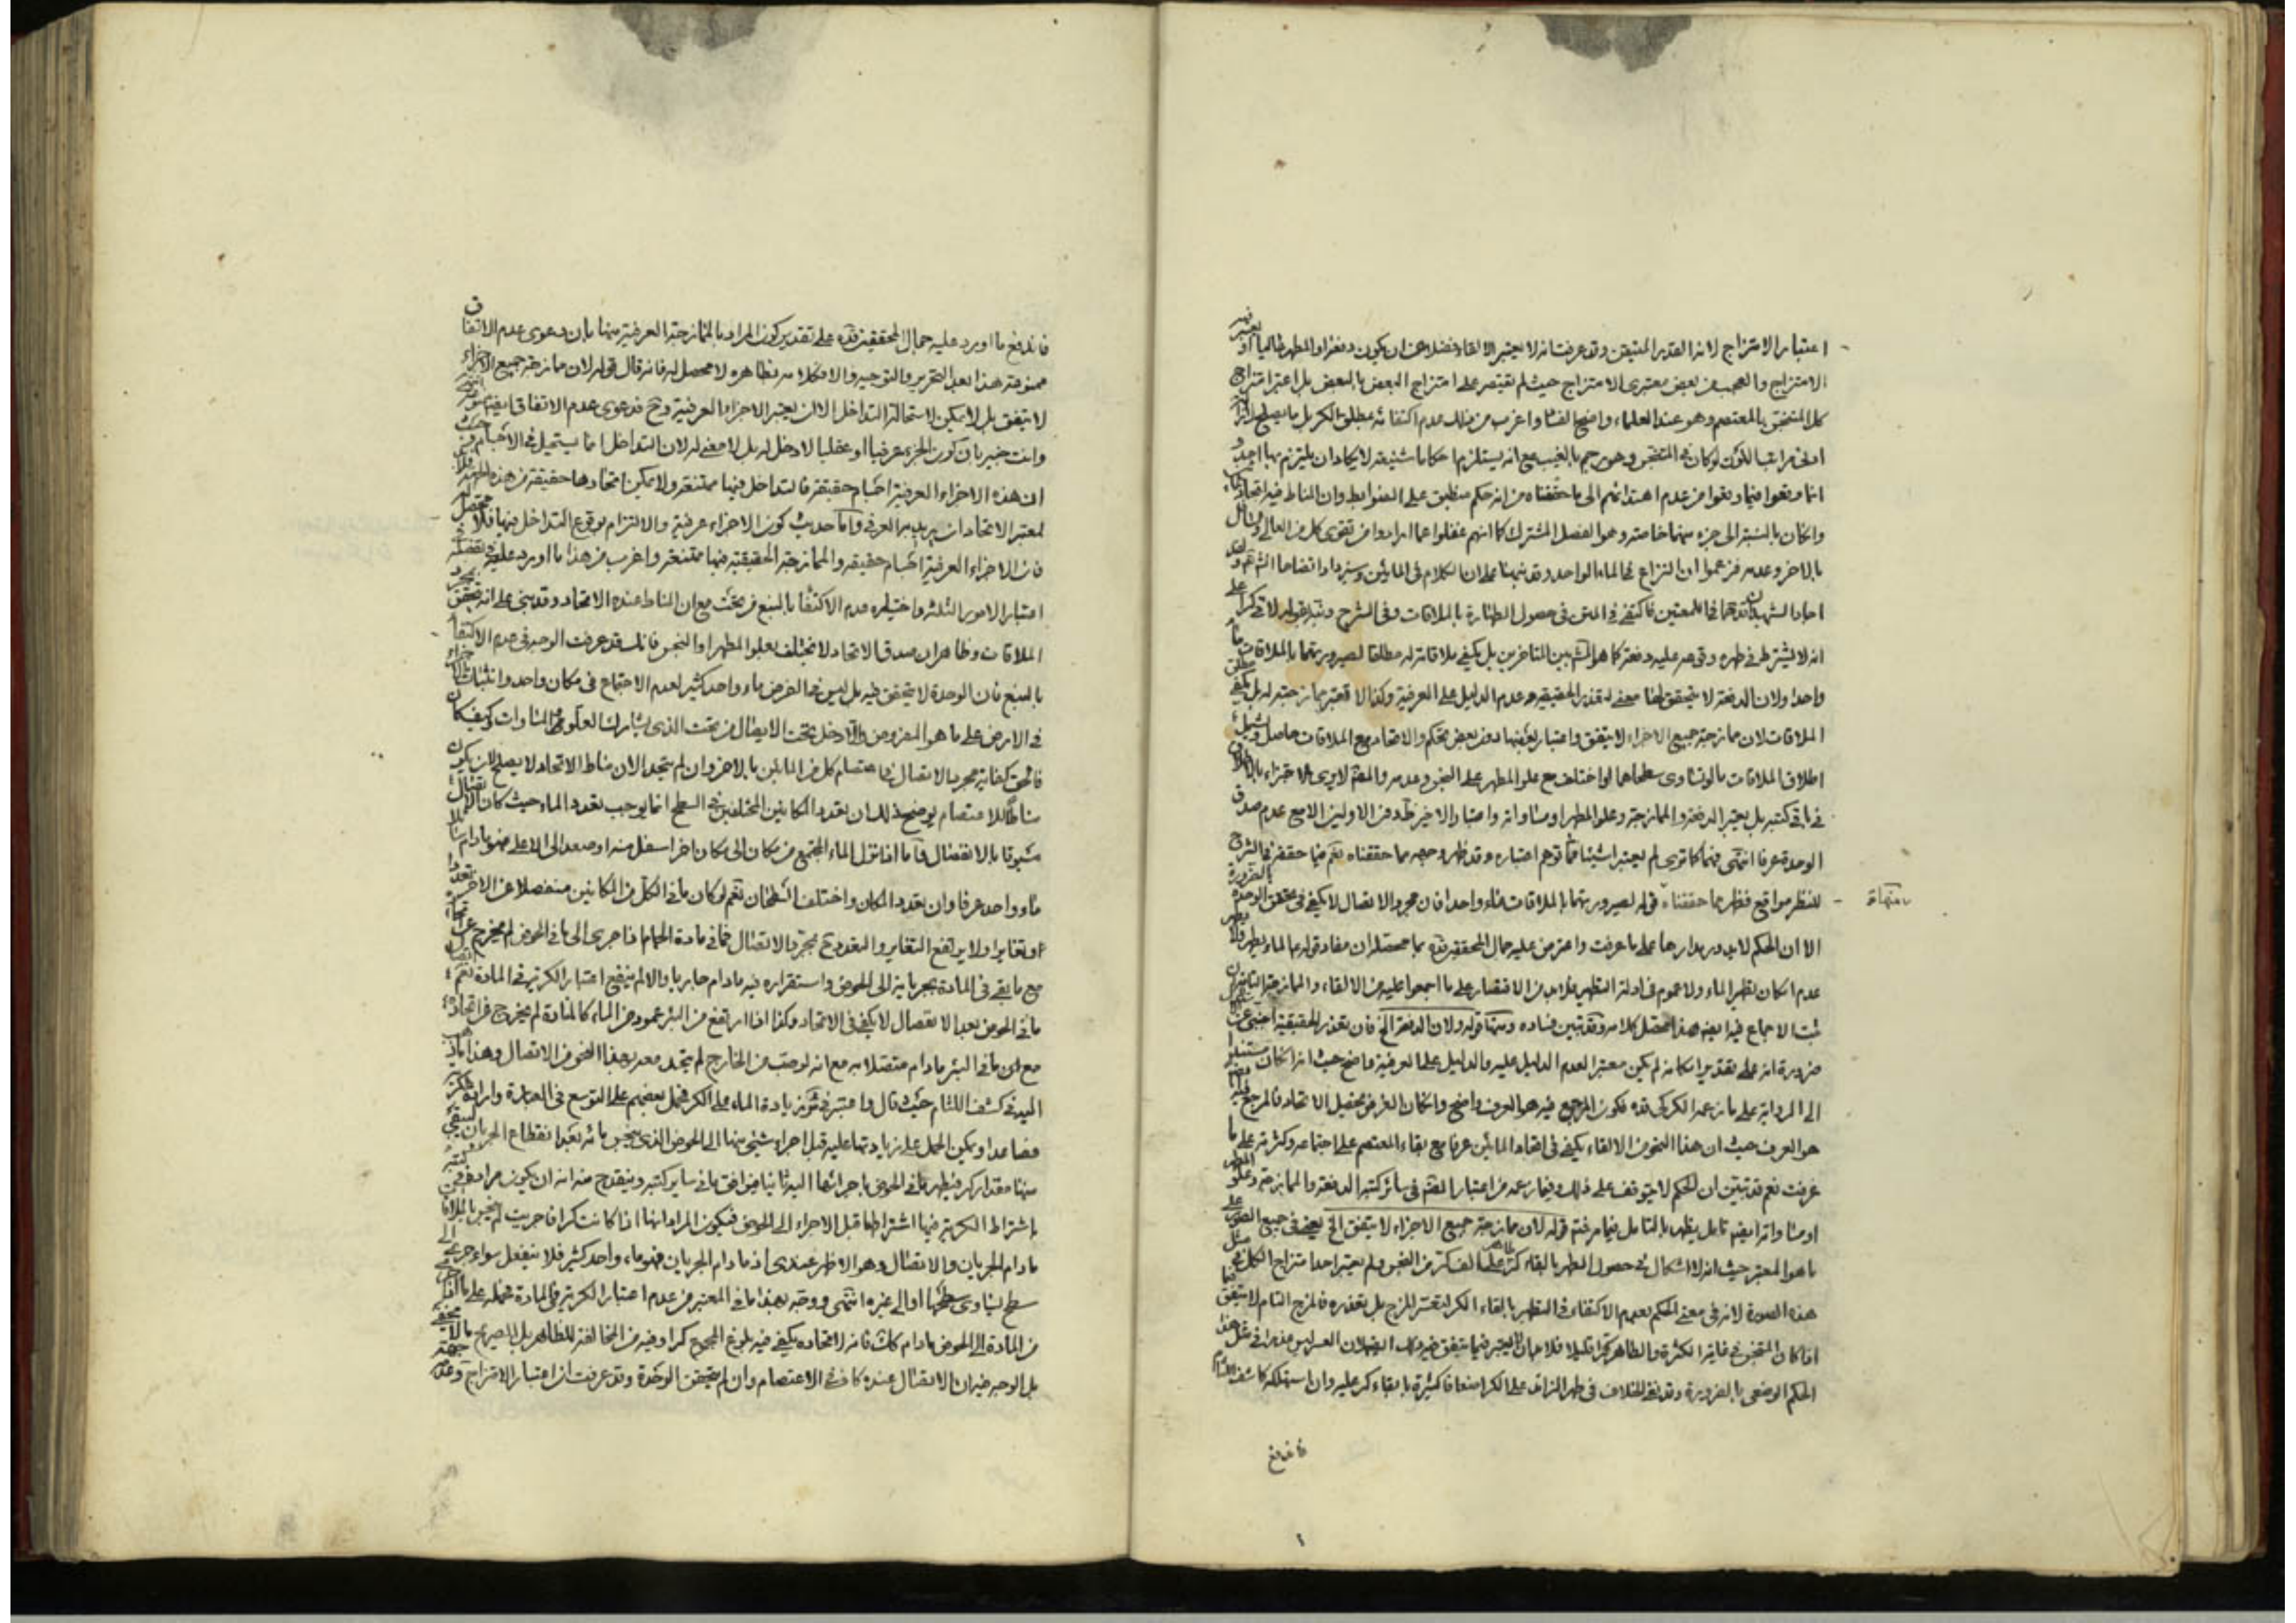 اعتبار الامتزاج لانه القدر المتيقن وقد عرفت انه لا يعتبر الالقاء فضلا عن ان يكون دفعة او المطهر عاليا او يعتبر فيه
الامتزاج والعجب من بعض معتبرى الامتزاج حيث لم يقتصر على امتزاج البعض بالبعض بل اعتبر امتزاج
كل المتنجس بالمعتصم وهو عند العلماء واضح الفساد واغرب من ذلك عدم اكتفائه بمطلق الكر بل ما يصلح
لو كان المتنجس وهو رجم بالغيب مع انه يستلزم احكاما شنيعة لا يكاد ان يلتزم بها احد و
انما وقعوا فيما وقعوا من عدم اهتدائهم الى ما حققناه من انه حكم منطبق على الضوابط وان المناط فيه اتحاد
وان كان بالنسبة الى جزء منهما خاصة وهو الفصل المشترك كما انهم غفلوا عما ارادوا من تقوى كل من العالى والسافل
بالاخر وعدمه فزعموا ان النزاع فى الماء الواحد وقد نبهنا على ان الكلام فى المائين وسيزداد اتضاحا انشاء الله
اجاد الشهيد الثانى فى اللمعتين فاكتفى فى المتن فى حصول الطهارة بالملاقات وفى الشرح بقوله لاقى كرا على
انه لا يشترط فى طهره وقوعه عليه دفعة كما هو المشهور بين المتاخرين بل يكفى ملاقاته له مطلقا لصيرورتهما بالملاقات ماء
واحدا ولان الدفعة لا يتحقق لها معنى لتعذر الحقيقية وعدم الدليل على العرفية وكذا لا يعتبر ممازجته له بل يكفى مطلق
الملاقات لان ممازجة جميع الاجزاء لا يتفق واعتبار بعضها دون بعض تحكم والاتحاد مع الملاقات حاصل ويشمل
اطلاق الملاقات ما لو تساوى سطحاهما او اختلف مع علو المطهر على النجس وعدمه والمص لا يرى الاجتزاء بالاطلاق
فى باقى كتبه بل يعتبر الدفعة والممازجة وعلو المطهر او مساواته واعتبار الاخير ظاهر دون الاولين الا مع عدم صدق
الوحدة عرفا انتهى فهما كما ترى لم يعتبرا شيئا مما توهم اعتباره وقد ظهر وجهه مما حققناه نعم فيما حققه فى الشرح
للنظر مواقع فظهر بما حققناه قوله لصيرورتهما بالملاقات ماء واحدا فان مجرد الاتصال لا يكفى فى تحقق الوحدة بالضرورة
منها
الا ان الحكم لا يدور مدارها على ما عرفت واعترض عليه جمال المحققين قده بما محصله ان مفاد قوله ع الماء يطهر ولا يطهر
عدم امكان تطهير الماء ولا عموم فى ادلة التطهير فلابد من الاقتصار على ما اجمعوا عليه من الالقاء والممازجة
ثبت الاجماع فيه ايضا هذا محصل كلامه وقد تبين فساده ومنها قوله ولان الدفعة الخ فان تعذر الحقيقية اجنبى عن
ضرورة انه على تقدير امكانه لم يكن معتبرا لعدم الدليل عليه والدليل على العرفية واضح حيث انه ان كان مستندا
الى الرواية على ما زعمه الكركى قده فكون المرجع فيه هو العرف واضح وان كان الغرض تحصيل الاتحاد فالمرجع فيه ايضا
هو العرف حيث ان هذا النحو من الالقاء يكفى فى اتحاد المائين عرفا مع بقاء المعتصم على اجتماعه وكثرته على ما
عرفت نعم قد تبين ان الحكم لا يتوقف على ذلك وفيما زعمه من اعتبار المص فى سائر كتبه الدفعة والممازجة وعلو المطهر
او مساواته ايضا تامل يظهر بالتامل فيما مر ثم قوله لان ممازجة جميع الاجزاء لا يتفق الخ يعنى فى جميع الصور على
ما هو المعتبر حيث انه لا اشكال فى حصول الطهر بالقاء كر على الف كر من النجس ولم يعتبر احد امتزاج الكل فى مثل
هذه الصورة لانه فى معنى الحكم بعدم الاكتفاء فى التطهير بالقاء الكر لتعسر المزج بل تعذره فالمزج التام لا يتفق فيما
اذا كان المتنجس فى غاية الكثرة والطاهر كرا قليلا فلا معنى ان يعتبر فيما يتفق فيه ذلك لان العسر ليس عذرا فى مثل هذا
الحكم الوضعى بالضرورة وقد نفى الخلاف فى طهر الزائد على الكر اضعافا كثيرة بالقاء كر عليه وان استهلكه كاشف اللثام
فاندفع
فاندفع ما اورد عليه جمال المحققين قده على تقدير كون المراد بالممازجة العرفية منها بان دعوى عدم الاتفاق
ممنوعة هذا بعد التحرير والتوجيه والا فكلامه بظاهره لا محصل له فانه قال قوله لان ممازجة جميع الاجزاء
لا يتفق بل لا يمكن لاستحالة التداخل الا ان يعتبر الاجزاء العرفية وح فدعوى عدم الاتفاق ايضا ممنوعة
وانت خبير بان كون الجزء عرفيا او عقليا لا دخل له بل لا معنى له لان التداخل انما يستحيل فى الاجسام
ان هذه الاجزاء العرفية اجسام حقيقة فالتداخل فيها ممتنعة ولا يمكن اتحادها حقيقة من هذه الجهة فلابد
لمعتبر الاتحاد ان يريد به العرفى واما حديث كون الاجزاء عرفية والالتزام بوقوع التداخل فيها فلا محصل له
فان الاجزاء العرفية اجسام حقيقة والممازجة الحقيقية فيها ممتنعة واغرب من هذا ما اورد عليه
اعتبار الامور الثلثة واختياره عدم الاكتفاء بالنبع من تحت مع ان المناط عنده الاتحاد وقد بنى على انه يتحقق بمجرد
الملاقات وظاهر ان صدق الاتحاد لا يختلف بعلو المطهر او النجس فانك قد عرفت الوجه فى عدم الاكتفاء
بالنبع فان الوحدة لا يتحقق فيه بل ليس فى الفرض ماء واحد كثير لعدم الاجتماع فى مكان واحد وانبثاث الاجزاء
فى الارض على ما هو المفروض والا دخل تحت الاتصال من تحت الذى يشارك العلو والمساوات وكيف كان
فالحق كفاية مجرد الاتصال فى اعتصام كل من المائين بالاخر وان لم يتحد الان مناط الاتحاد لا يصلح لان يكون
مناطا للاعتصام يوضح ذلك ان تعدد المكانين المختلفين فى السطح انما يوجب تعدد الماء حيث كان الاتصال
مسبوقا بالانفصال فاما اذا نزل الماء المجتمع من مكان الى مكان اخر اسفل منه او صعد الى الاعلى فهو ما دام متصلا
ماء واحد عرفا وان تعدد المكان واختلف السطحان نعم لو كان ماء فى الكل من المكانين منفصلا عن الاخر تعددا
او تغايرا ولا يرتفع التغاير والتعدد ح بمجرد الاتصال فما فى مادة الحمام اذا جرى الى ما فى الحوض لم يخرج عن اتحاده
مع ما بقى فى المادة بجريانه الى الحوض واستقراره فيه ما دام جاريا والا لم ينفع اعتبار الكرية فى المادة نعم اتصال
ما فى الحوض بعد الانفصال لا يكفى فى الاتحاد وكذا اذا ارتفع من البئر عمود من الماء كالمنارة لم يخرج عن اتحاده
مع ما فى البئر ما دام متصلا به مع انه لو صب من الخارج لم يتحد معه بهذا النحو من الاتصال وهذا
اليه فى كشف اللثام حيث قال واعتبر فى ئر زيادة الماء على الكر فحمل بعضهم على التوسع فى العبارة وارادة الكرية
فصاعدا ويمكن الحمل على زيادتها عليه قبل اجراء شىء منها الى الحوض الذى ينجس ماؤه بعد انقطاع الجريان ليبقى
منها مقدار كر فيطهر ما فى الحوض باجرائها اليه ثانيا فيوافق ما فى ساير كتبه وينقدح منه انه ان يكون مراده فى كتبه
باشتراط الكرية فيها اشتراطها قبل الاجراء الى الحوض فيكون المراد انها اذا كانت كرا فاجريت لم ينجس بالملاقاة
ما دام الجريان والاتصال وهو الاظهر عندى اذ ما دام الجريان فهو ماء واحد كثير فلا ينفعل سواء جرى الى
سطح يساوى سطحها او الى غيره انتهى ووجه بهذا ما فى المعتبر من عدم اعتبار الكرية فى المادة فحمله على ما اذا جرى
من المادة الى الحوض ما دام كك فانه لاتحاده يكفى فيه بلوغ المجموع كرا وفيه من المخالفة للظاهر بل الصريح ما لا يخفى
بل الوجه فيه ان الاتصال عنده كاف فى الاعتصام وان لم يتحقق الوحدة وقد عرفت ان اعتبار الامتزاج وعدمه